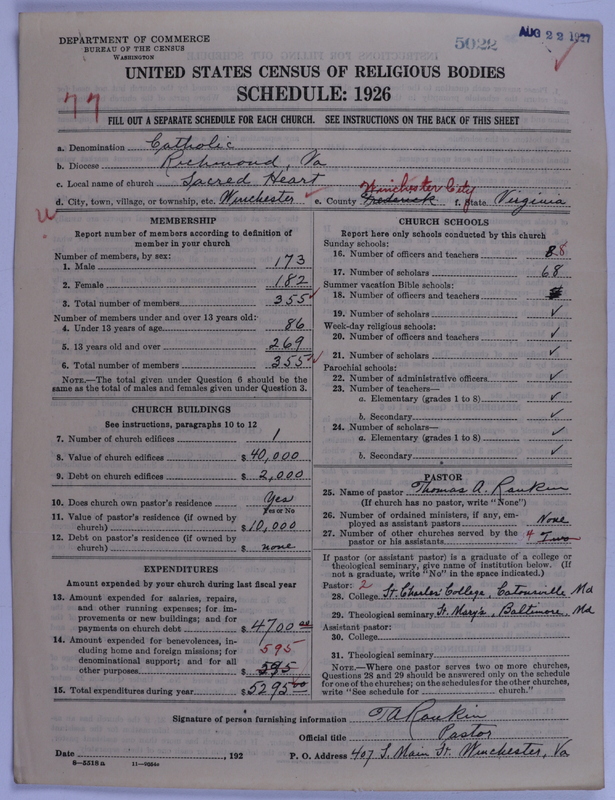 DEPARTMENT OF COMMERCE
BUREAU OF THE CENSUS
WASHINGTON
5022
AUG 22 1927
UNITED STATES CENSUS OF RELIGIOUS BODIES
SCHEDULE: 1926
77
FILL OUT A SEPARATE SCHEDULE FOR EACH CHURCH. SEE INSTRUCTIONS ON THE BACK OF THIS SHEET
a. Denomination Catholic
b. Diocese Richmond, Va
c. Local name of church Sacred Heart
d. City, town, village, or township, etc. Winchester e. County Frederick Winchester City f. State Virginia
MEMBERSHIP
Report number of members according to definition of
member in your church
Number of members, by sex:
1. Male 173
2. Female 182
3. Total number of members 355
Number of members under and over 13 years old:
4. Under 13 years of age 86
5. 13 years old and over 269
6. Total number of members 355
NOTE.—The total given under Question 6 should be the
same as the total of males and females given under Question 3.
CHURCH BUILDINGS
See instructions, paragraphs 10 to 12
7. Number of church edifices 1
8. Value of church edifices $40,000
9. Debt on church edifices $2,000
10. Does church own pastor's residence Yes
Yes or No
11. Value of pastor's residence (if owned by
church) $10,000
12. Debt on pastor's residence (if owned by
church) $none
EXPENDITURES
Amount expended by your church during last fiscal year
13. Amount expended for salaries, repairs,
and other running expenses; for im-
provements or new buildings; and for
payments on church debt $4700 00
14. Amount expended for benevolences, in-
cluding home and foreign missions; for
denominational support; and for all 595
other purposes $595
15. Total expenditures during year $5295 00
CHURCH SCHOOLS
Report here only schools conducted by this church
Sunday schools:
16. Number of officers and teachers 8 8
17. Number of scholars 68
Summer vacation Bible schools:
18. Number of officers and teachers
19. Number of scholars ✓
Week-day religious schools:
20. Number of officers and teachers ✓
21. Number of scholars ✓
Parochial schools:
22. Number of administrative officers ✓
23. Number of teachers—
a. Elementary (grades 1 to 8) ✓
b. Secondary ✓
24. Number of scholars—
a. Elementary (grades 1 to 8) ✓
b. Secondary ✓
PASTOR
25. Name of pastor Thomas A. Rankin
(If church has no pastor, write "None")
26. Number of ordained ministers, if any, em-
ployed as assistant pastors None
27. Number of other churches served by the
pastor or his assistants 4 Two
If pastor (or assistant pastor) is a graduate of a college or
theological seminary, give name of institution below. (If
not a graduate, write "No" in the space indicated.)
Pastor: 2
28. College St. Charles College, Catonsville Md
29. Theological seminary St. Mary's, Baltimore, Md
Assistant pastor:
30. College
31. Theological seminary
NOTE.—Where one pastor serves two or more churches,
Questions 28 and 29 should be answered only on the schedule
for one of the churches; on the schedules for the other churches,
write "See schedule for church."
Signature of person furnishing information TA Rankin
Official title Pastor
Date , 192 P. O. Address 407 S. Main St. Winchester, Va
8—5518 a